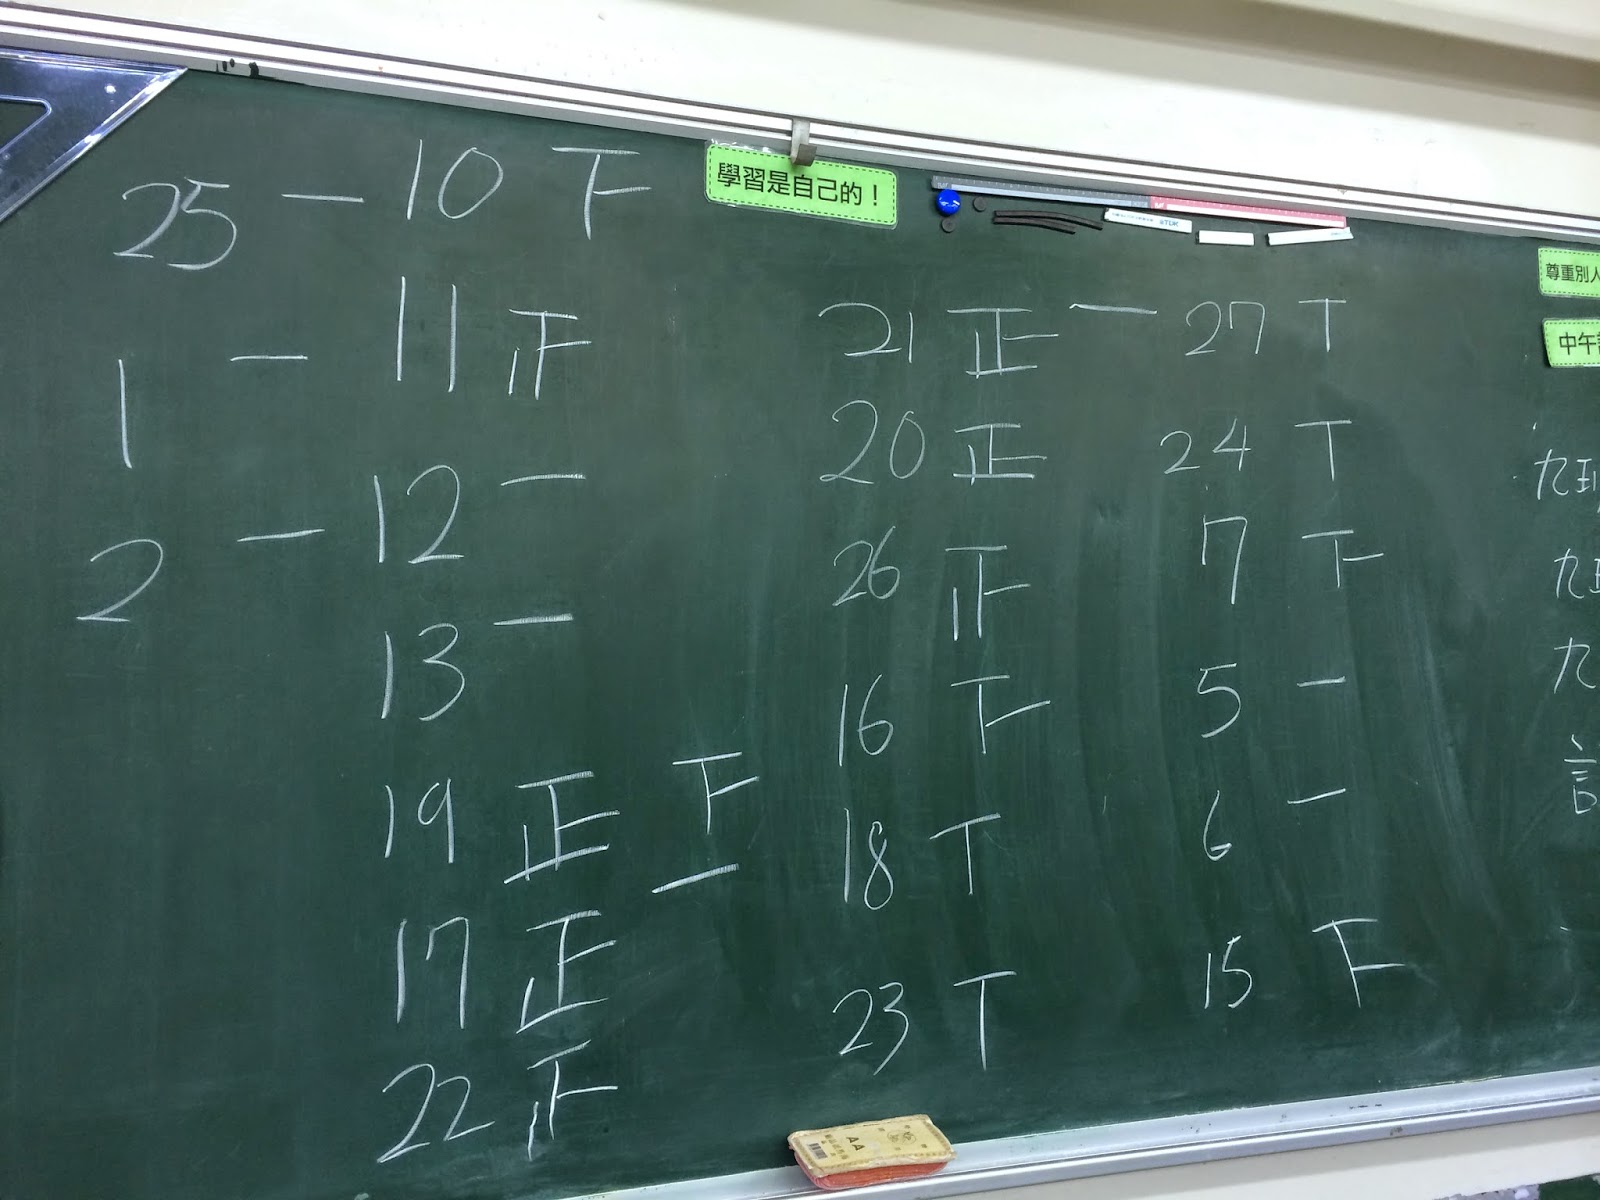 學習是自己的！
尊重別人
中午
25 一 10 下
1 一 11 正
2 一 12 一
13 一
19 正 下 一
17 正
22 正
21 正 一
20 正
26 正
16 下
18 丅
23 丅
27 丅
24 丅
7 下
5 一
6 一
15 下
九班
九班
九